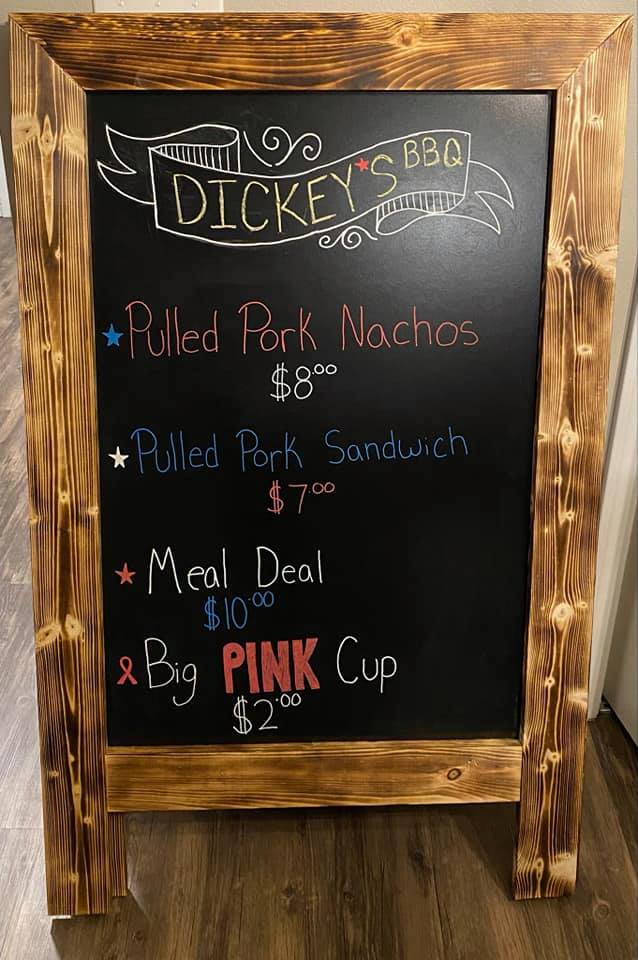 DICKEY'S BBQ
Pulled Pork Nachos
$8.00
Pulled Pork Sandwich
$7.00
Meal Deal
$10.00
Big PINK Cup
$2.00